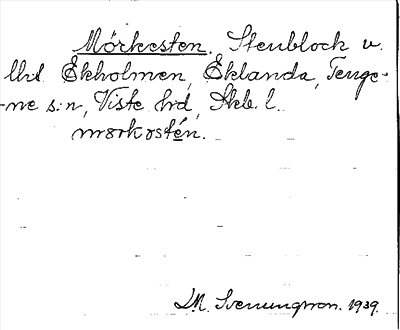 Mörkesten. Stenblock v.
lht Ekholmen, Eklanda, Tenge-
-ne s:n, Viste hrd, Skb. l.
morkostén.
J.M. Svenungsson. 1939.